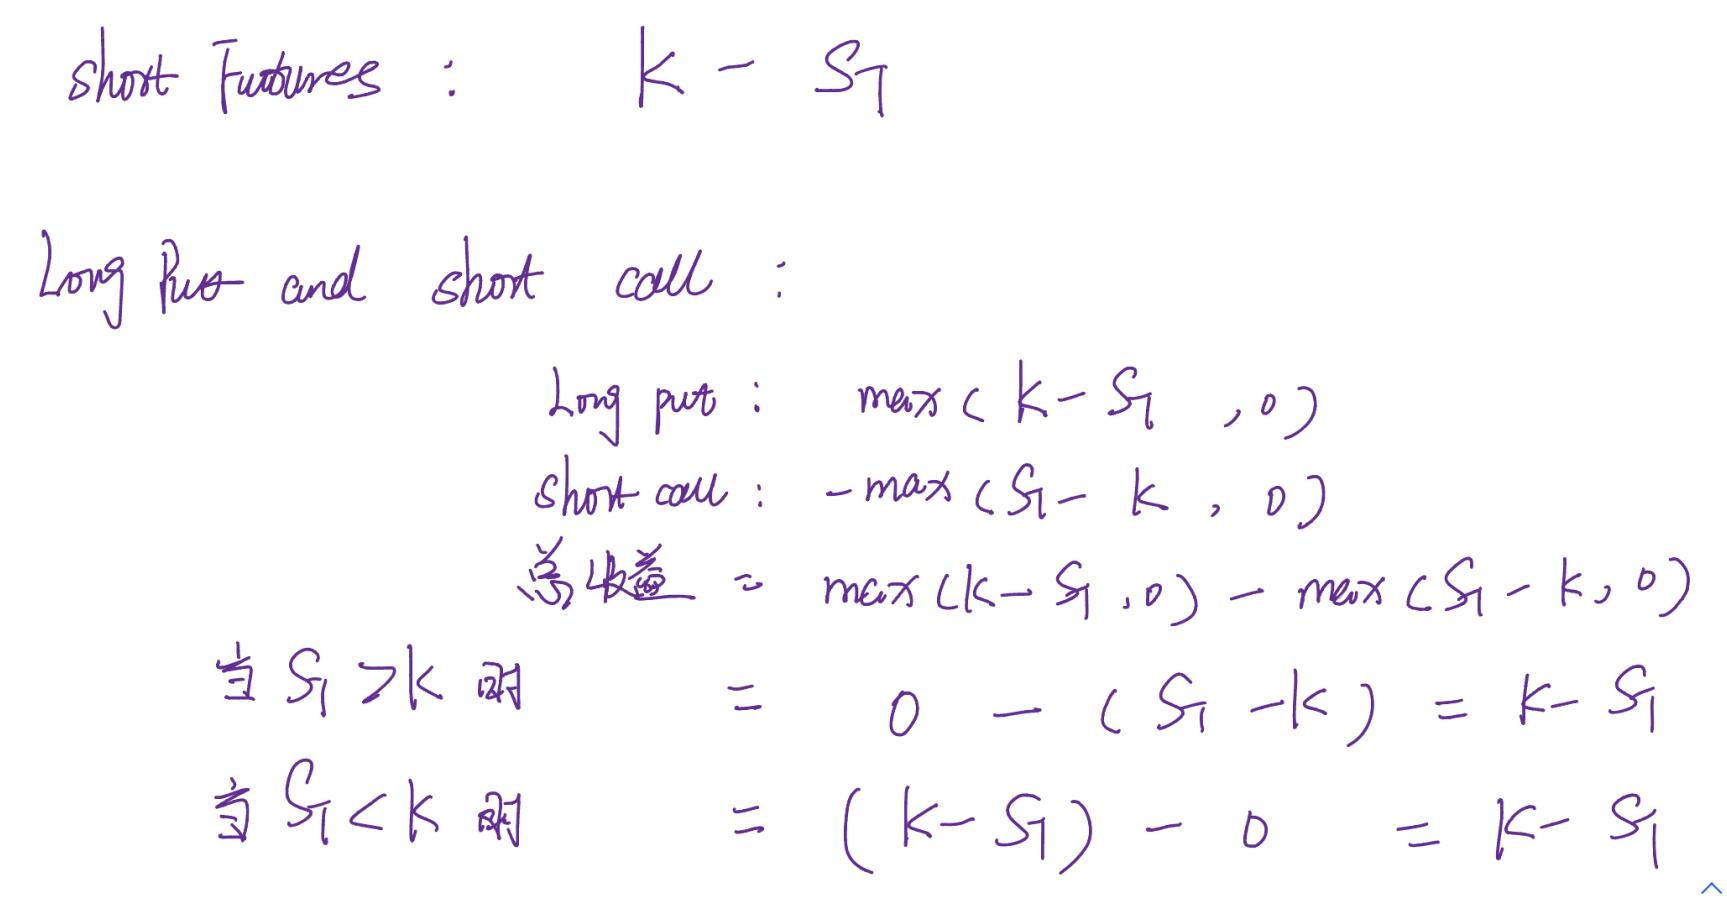 short Futures : K - S_T
Long Put and short call :
Long put : max ( K - S_T , 0 )
short call : - max ( S_T - K , 0 )
总收益 = max ( K - S_T , 0 ) - max ( S_T - K , 0 )
当 S_T > K 时 = 0 - ( S_T - K ) = K - S_T
当 S_T < K 时 = ( K - S_T ) - 0 = K - S_T